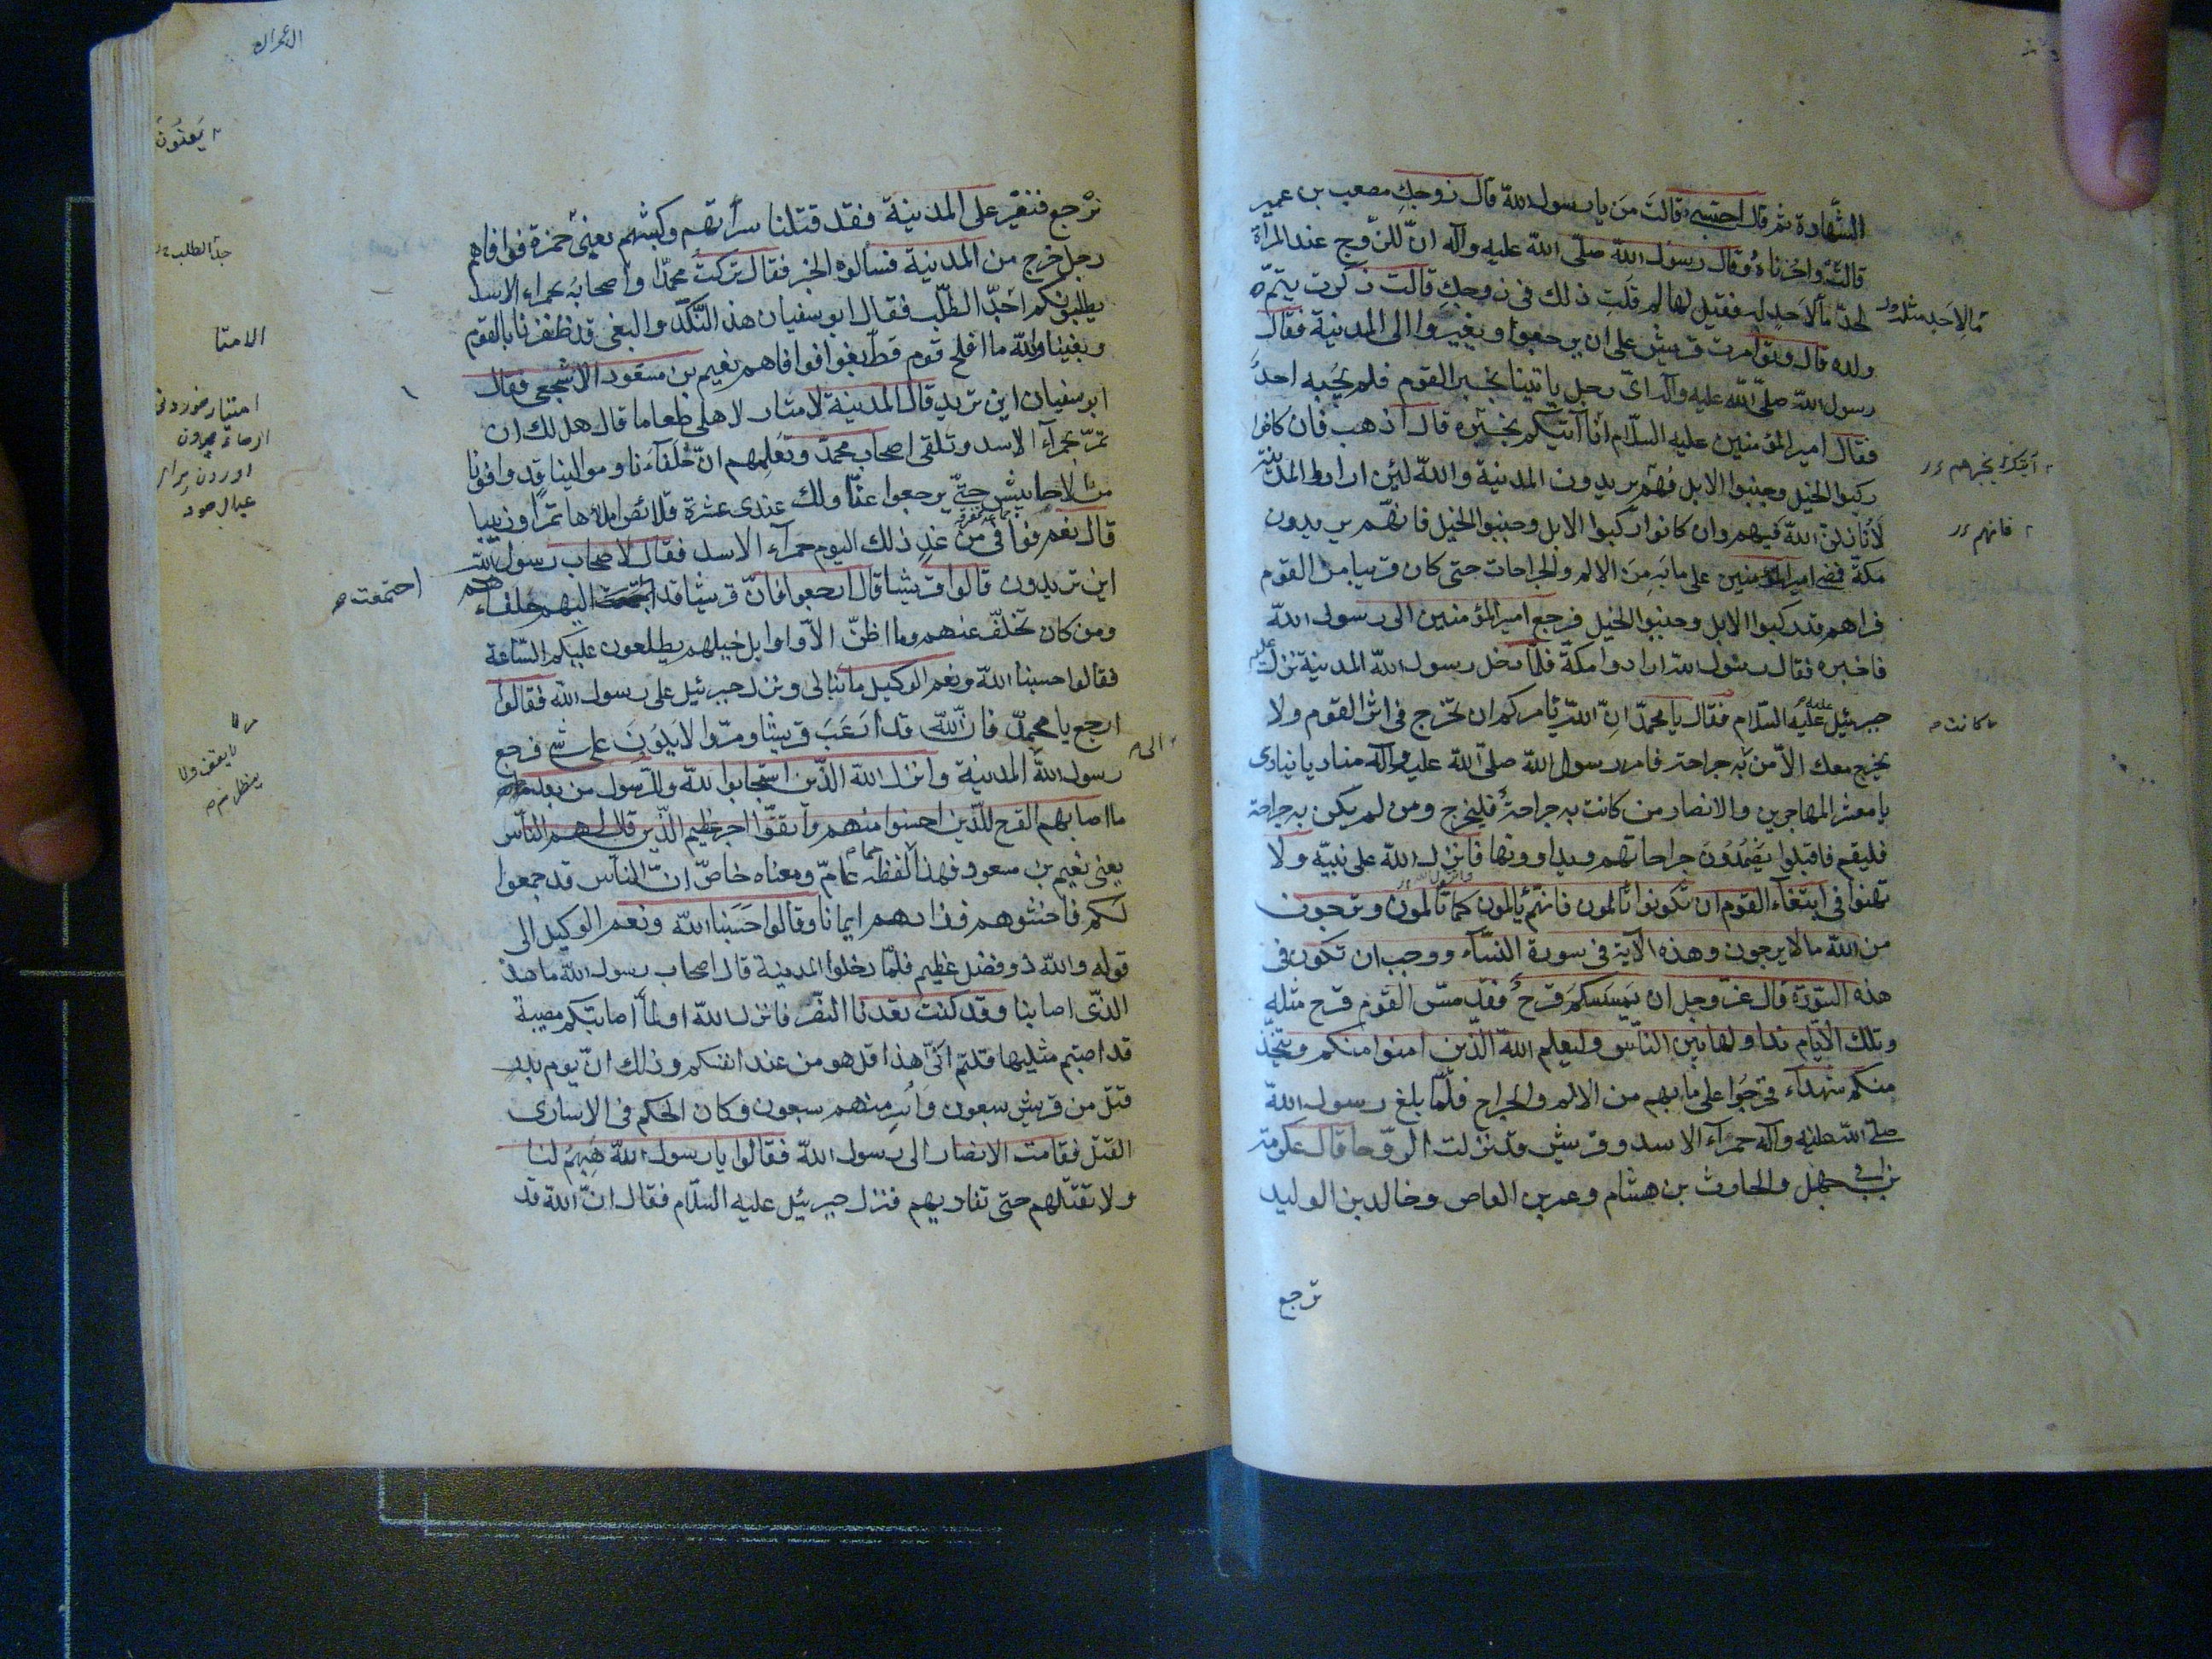 الشّهادة ثم قال احتسبى قالت من يا رسول الله قال زوجك مصعب بن عمير
قالت واحزناه وقال رسول الله صلّى الله عليه وآله انّ للزّوج عند المرأة
لحدّ ما لاحد له فقيل لها لم قلت ذلك فى زوجك قالت ذكرت يتم
ما لاحد مثله
ولده قال وتوامرت قريش على ان يرجعوا ويغيروا الى المدينة فقال
رسول الله صلّى الله عليه وآله اىّ رجل ياتينا بخبر القوم فلم يجبه احد
فقال امير المؤمنين عليه السلّام انا آتيكم بخبره قال اذهب فان كانوا
آتيكم بخبرهم
ركبوا الخيل وجنبوا الابل فهم يريدون المدينة والله لئن ارادوا المدينة
لانازلنّ الله فيهم وان كانوا ركبوا الابل وجنبوا الخيل فانهّم يريدون
فانهم
مكّة فمضى امير المؤمنين على ما به من الالم والجراحات حتى كان قريبا من القوم
فراهم قد ركبوا الابل وجنبوا الخيل فرجع امير المؤمنين الى رسول الله
فاخبره فقال رسول الله ارادوا مكّة فلمّا دخل رسول الله المدينة نزل عليه
جبرئيل عليه السّلام فقال يا محمدّ انّ اللّه يأمركم ان تخرج فى اثر القوم ولا
يخرج معك الاّ من به جراحة فامر رسول الله صلّى الله عليه وآله مناديا ينادى
كانت
يا معشر المهاجرين والانصار من كانت به جراحة فليخرج ومن لم يكن به جراحة
فليقم فاقبلوا يضمدون جراحاتهم ويداوونها فانزل الله على نبيّه ولا
تهنوا فى ابتغاء القوم ان تكونوا تالمون فانهّم يألمون كما تألمون وترجون
من الله مالا يرجون وهذه الآية فى سورة النسّاء ووجب ان تكون فى
هذه السّورة قال عزّ وجل ان يمسسكم قرح فقد مسّ القوم قرح مثله
وتلك الأيّام نداولها بين النّاس وليعلم الله الذّين امنوا منكم ويتخّذ
منكم شهداء فخرجوا على ما بهم من الالم والجراح فلمّا بلغ رسول الله
صلى الله عليه وآله حمراء الاسد وقريش قد نزلت الرّوحا قال عكرمة
بن ابى جهل والحارث بن هشام وعمر بن العاص وخالد بن الوليد
ترجع
نرجع فنغير على المدينة فقد قتلنا سراتهم وكبشهم يعنى حمزة فوافاهم
رجل خرج من المدينة فسألوه الخبر فقال تركت محمدّا واصحابه بحمراء الاسد
يطلبونكم احدّ الطلّب فقال ابو سفيان هذا النّكد والبغى قد ظفرنا بالقوم
جدّ الطلب
وبغينا والله ما افلح قوم قطّ بغوا فوافاهم نعيم بن مسعود الاشجعى فقال
ابو سفيان اين تريد قال المدينة لامتار لاهلى طعاما قال هل لك ان
تمرّ بحمراء الاسد وتلقى اصحاب محمدّ وتعلمهم انّ حلفاءنا وموالينا قد وافونا
من الاحابيش حتىّ يرجعوا عنّا ولك عندى عشرة قلائص املاها تمرا وزبيبا
قال نعم فوافى من غد ذلك اليوم حمراء الاسد فقال لاصحاب رسول الله
اين تريدون قالوا قريشا قال ارجعوا فانّ قريشا قد اجتمعت اليهم حلفاءهم
اجتمعت
ومن كان تخلّف عنهم وما اظنّ الاّ اوايل خيلهم يطلعون عليكم السّاعة
فقالوا حسبنا الله ونعم الوكيل ما نبالى ونزل جبرئيل على رسول الله فقالوا
ارجع يا محمدّ فانّ اللّه قد ارعب قريشا ومرّوا لا يلوون على شىء فرجع
الى
رسول الله المدينة وانزل الله الذّين استجابوا لله والرّسول من بعد
ما اصابهم القرح للّذين احسنوا منهم واتقوّا اجر عظيم الّذين قال لهم النّاس
يعنى نعيم بن مسعود فهذا لفظه عامّ ومعناه خاصّ انّ النّاس قد جمعوا
لكم فاخشوهم فزادهم ايمانا وقالوا حسبنا الله ونعم الوكيل الى
قوله والله ذو فضل عظيم فلمّا دخلوا المدينة قال اصحاب رسول الله ما هذا
الذّى اصابنا وقد كنت تعدنا النّصر فانزل الله اولمّا اصابتكم مصيبة
قد اصبتم مثليها قلتم انّى هذا قل هو من عند انفسكم وذلك انّ يوم بدر
قتل من قريش سبعون واسر منهم سبعون وكان الحكم فى الاسارى
القتل فقامت الانصار الى رسول الله فقالوا يا رسول الله هبهم لنا
ولا تقتلهم حتى تفاديهم فنزل جبرئيل عليه السّلام فقال انّ الله قد